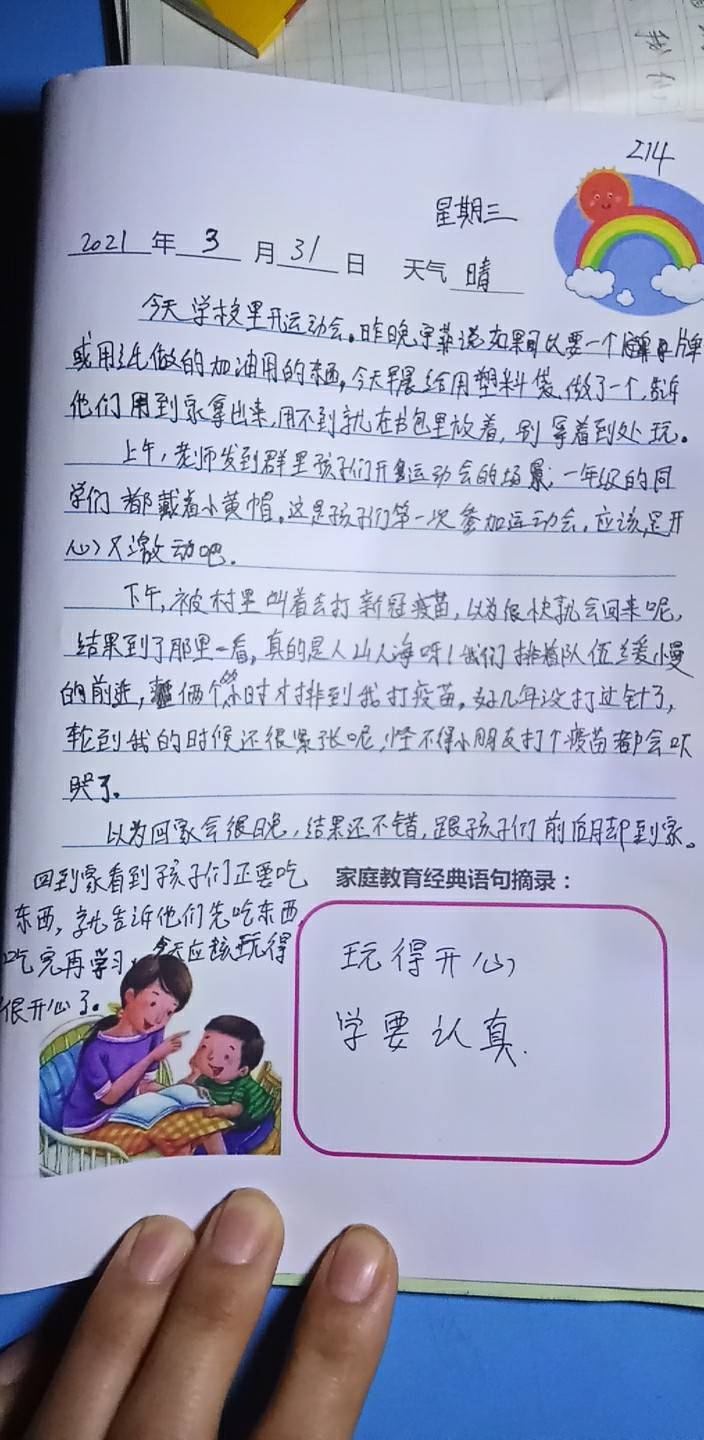 214
星期三
2021年3月31日 天气晴
今天学校里开运动会。昨晚宇菲说如果可以要一个牌
或用纸做的加油用的东西,今天早晨给用塑料袋做了一个,告诉
他们用到就拿出来,用不到就在书包里放着,别拿着到处玩。
上午,老师发到群里孩子们开运动会的场景,一年级的同
学们都戴着小黄帽。这是孩子们第一次参加运动会,应该是开
心又激动吧。
下午,被村里叫着去打新冠疫苗,以为很快就会回来呢,
结果到了那里一看,真的是人山人海呀!我们排着队伍缓慢
的前进,俩个多小时才排到我打疫苗。好几年没打过针了,
轮到我的时候还很紧张呢,怪不得小朋友打个疫苗都会吓
哭了。
以为回家会很晚,结果还不错,跟孩子们前后脚到家。
回到家看到孩子们正要吃
东西,就告诉他们先吃东西,
吃完再学习,今天应该玩得
很开心了。
家庭教育经典语句摘录:
玩得开心
学要认真.